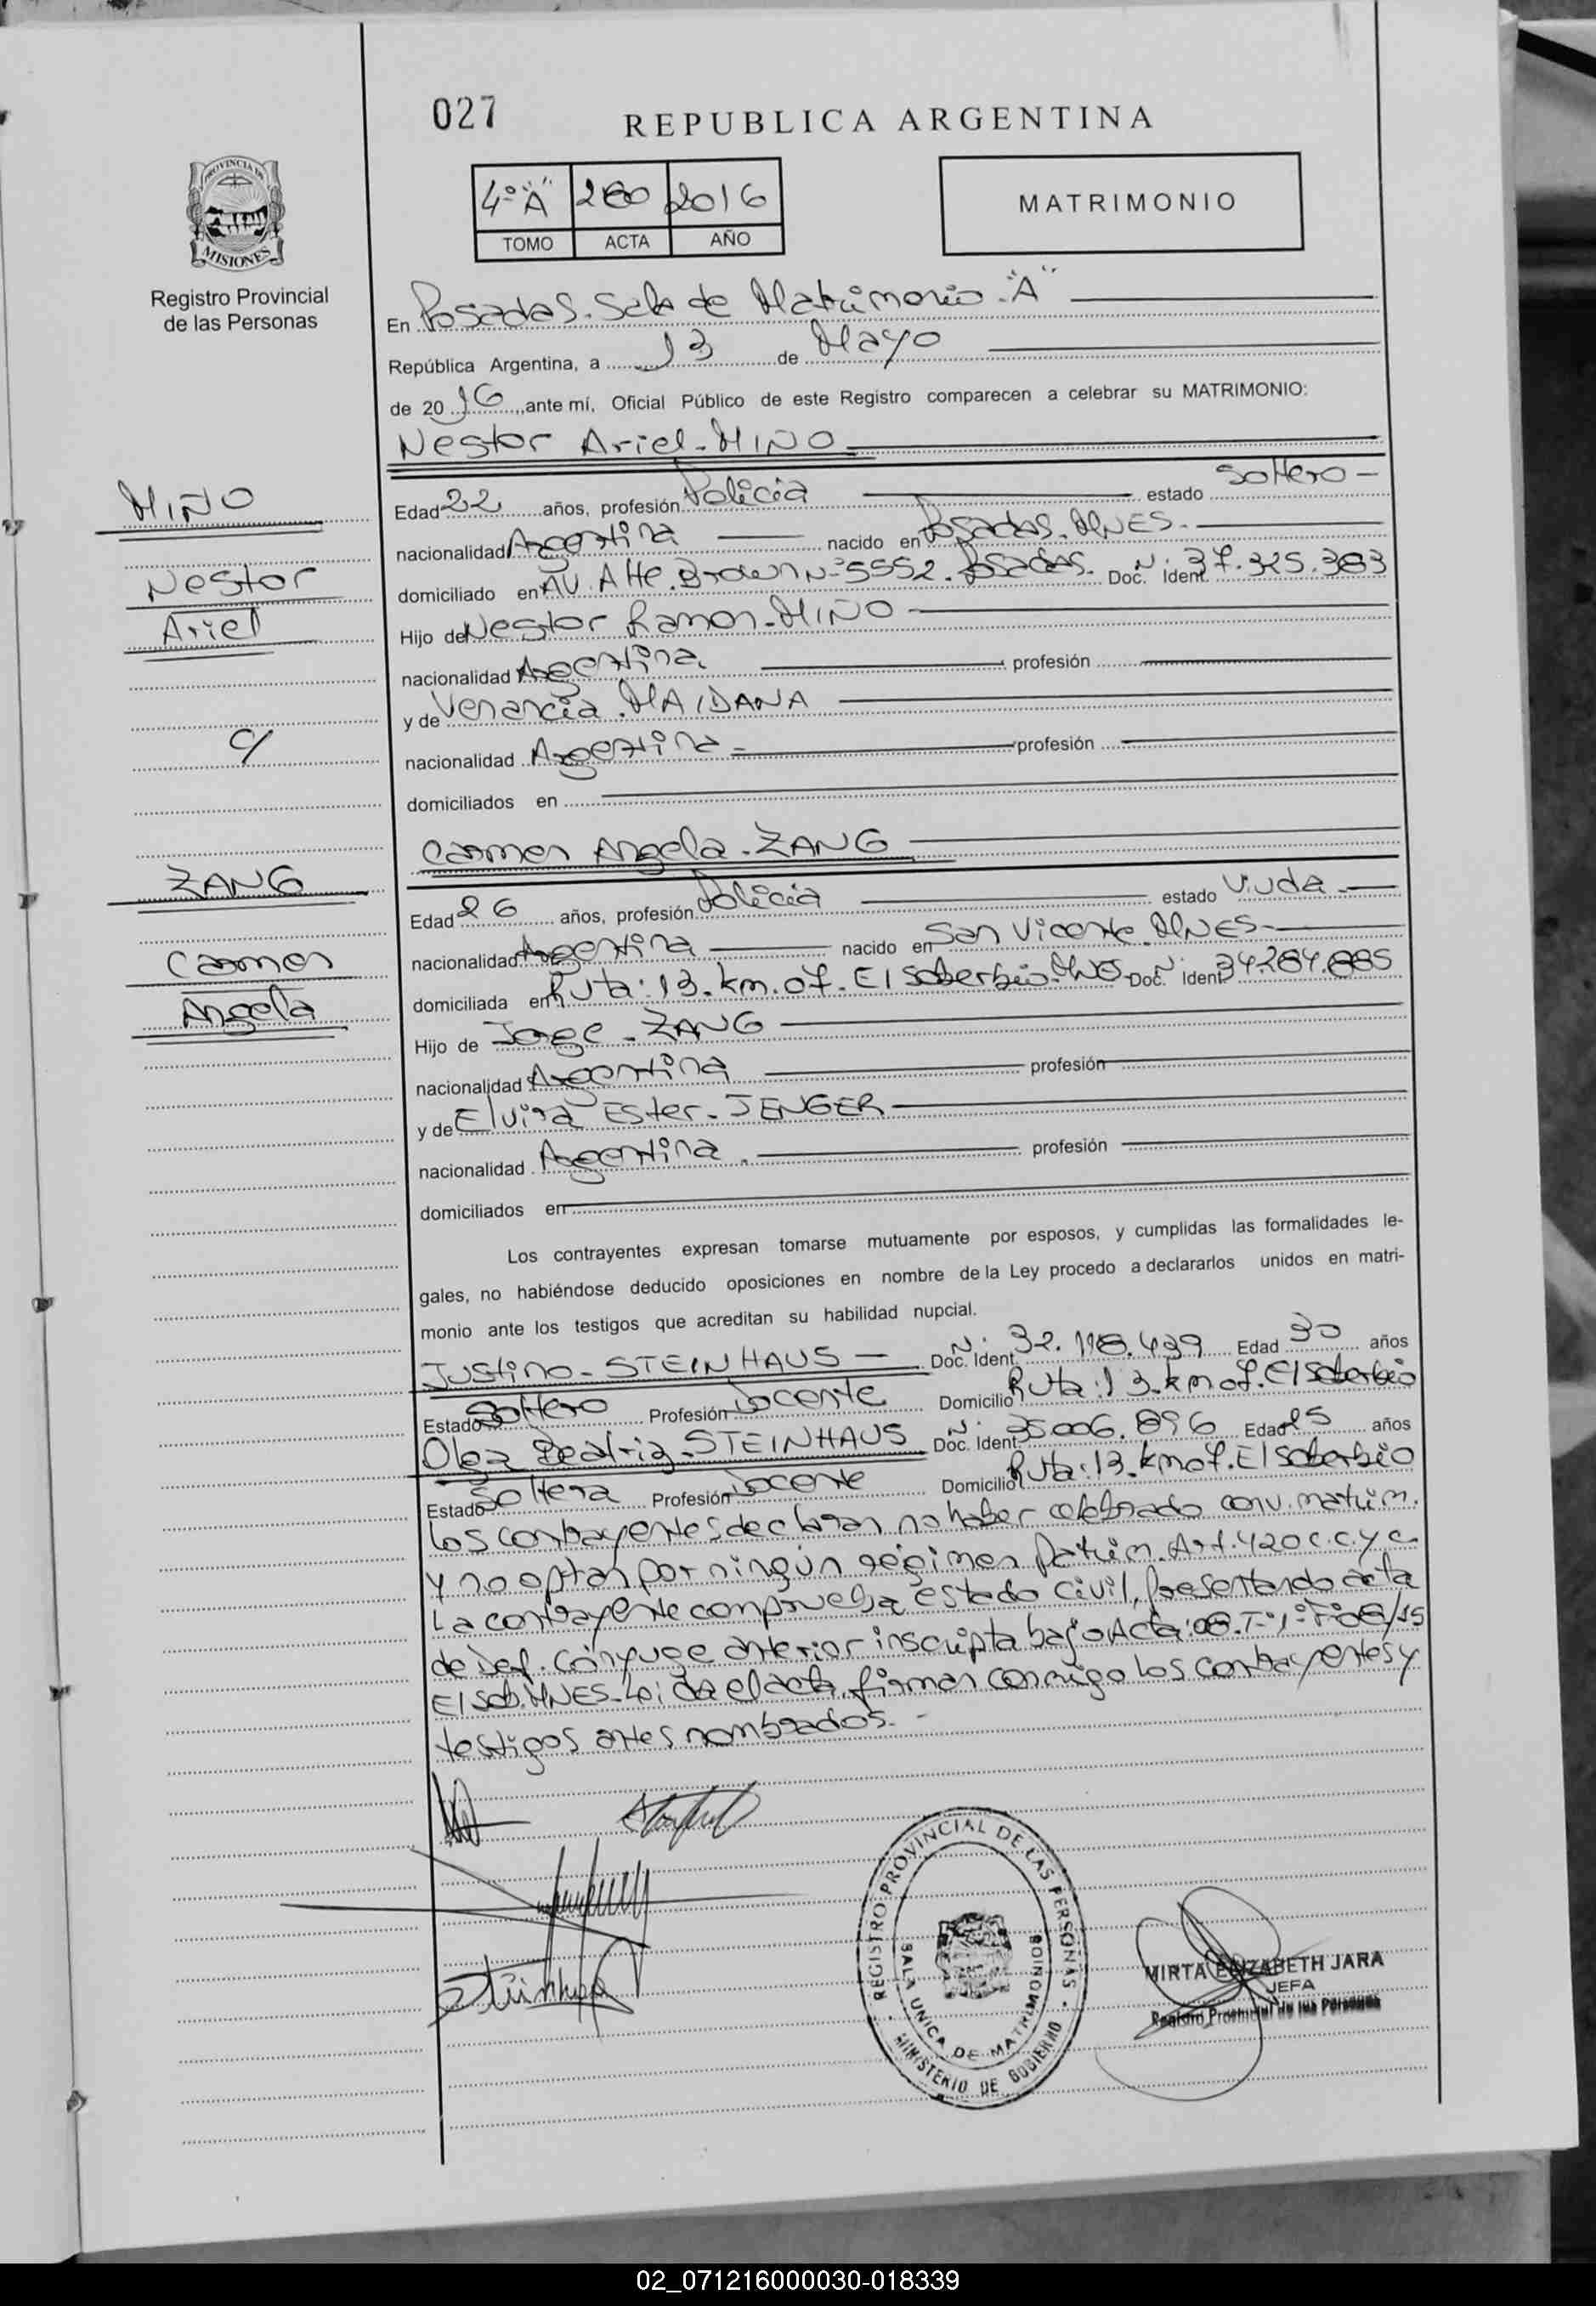 027
REPUBLICA ARGENTINA
PROVINCIA DE
MISIONES
Registro Provincial
de las Personas
4º "A" 280 2016
TOMO ACTA AÑO
MATRIMONIO
En Posadas. Sala de Matrimonio "A"
República Argentina, a 13 de Mayo
de 20 16, ante mí, Oficial Público de este Registro comparecen a celebrar su MATRIMONIO:
Nestor Ariel - MIÑO
MIÑO
Nestor
Ariel
c/
ZANG
Carmen
Angela
Edad 22 años, profesión Policía estado Soltero -
nacionalidad Argentina nacido en Posadas. MNES.
domiciliado en AV. Alte. Brown Nº 5552. Posadas. Doc. Ident. Nº 37.325.383
Hijo de Nestor Ramon - MIÑO
nacionalidad Argentina. profesión
y de Venancia. MAIDANA
nacionalidad Argentina - profesión
domiciliados en
Carmen Angela - ZANG
Edad 26 años, profesión Policía estado Viuda -
nacionalidad Argentina nacido en San Vicente. MNES.
domiciliada en Ruta: 13. km. 07. El Soberbio. Doc. Ident. Nº 34.284.885
Hijo de Jorge - ZANG
nacionalidad Argentina profesión
y de Elvira Ester - JENGER
nacionalidad Argentina. profesión
domiciliados en
Los contrayentes expresan tomarse mutuamente por esposos, y cumplidas las formalidades le-
gales, no habiéndose deducido oposiciones en nombre de la Ley procedo a declararlos unidos en matri-
monio ante los testigos que acreditan su habilidad nupcial.
Justino - STEINHAUS - Doc. Ident. Nº 32.118.439 Edad 30 años
Estado Soltero Profesión Docente Domicilio Ruta: 13. km 07. El Soberbio
Olga Beatriz - STEINHAUS Doc. Ident. Nº 35.006.896 Edad 25 años
Estado Soltera Profesión Docente Domicilio Ruta: 13. km 07. El Soberbio
Los contrayentes declaran no haber celebrado conv. matrim.
y no optan por ningún régimen Patrim. Art. 420 c.c.y c.
La contrayente comprueba estado civil, presentando acta
de Def. Cónyuge anterior inscripta bajo Acta: 08. Tº 1º Fº 08/15
El Sob. MNES. Leída el acta, firman conmigo los contrayentes y
testigos antes nombrados. -
REGISTRO PROVINCIAL DE LAS PERSONAS
SALA UNICA DE MATRIMONIOS
MINISTERIO DE GOBIERNO
MIRTA ELIZABETH JARA
JEFA
Registro Provincial de las Personas
02_071216000030-018339